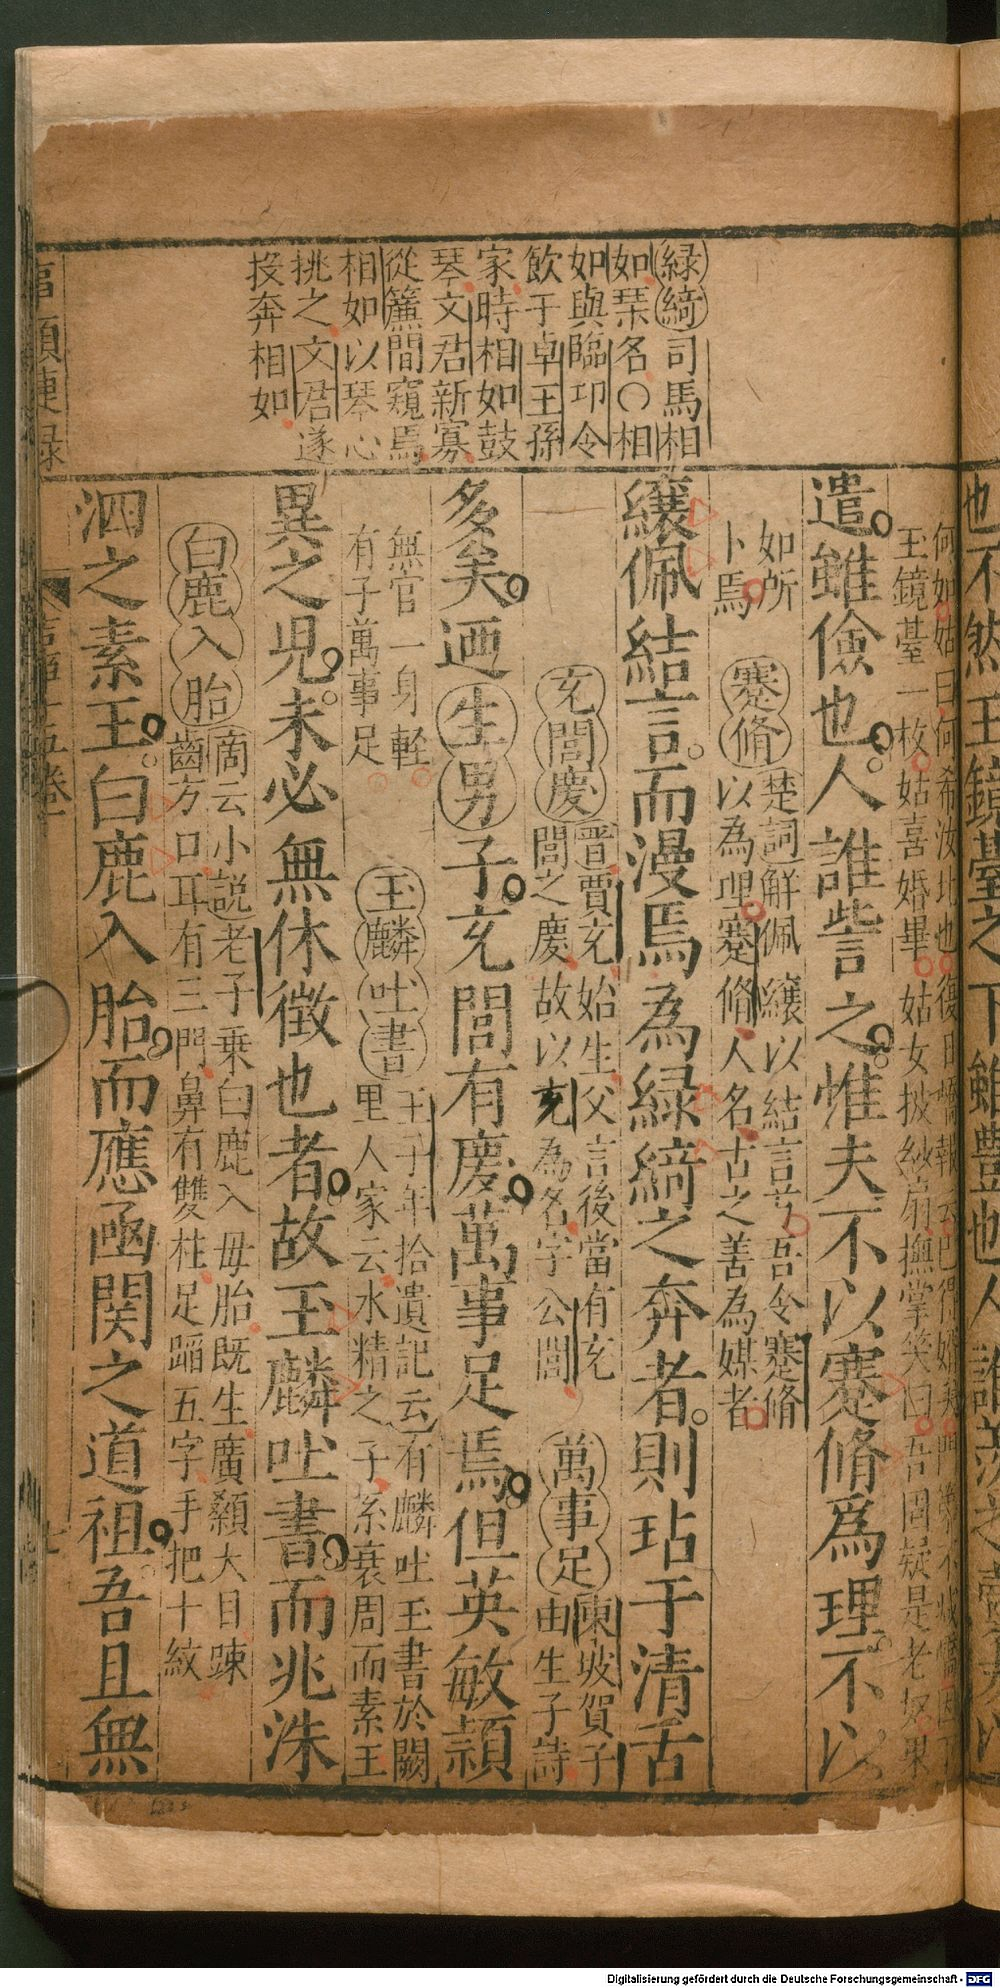 綠綺司馬相
如琹名○相
如與臨卭令
飲于卓王孫
家時相如鼓
琴文君新寡
從簾間窺焉
相如以琴心
挑之文君遂
投奔相如
何如姑曰何希汝比也復日
玉鏡臺一枚姑喜婚畢姑女披紗扇撫掌笑曰吾固疑是老奴果
遣雖儉也人誰訾之惟夫不以蹇脩爲理不以
如所
卜焉
蹇脩
楚詞觧佩纕以結言芐吾令蹇脩
以為理蹇脩人名古之善為媒者
纕佩結言而漫焉為綠綺之奔者則玷于清舌
充閭慶
晋賈充始生父言後當有充
閭之慶故以充為名字公閭
萬事足
東坡賀子
由生子詩
多矣廼生男子充閭有慶萬事足焉但英敏穎
無官一身軽
有子萬事足
玉麟吐書
王子年拾遺記云有麟吐玉書於闕
里人家云水精之子系衰周而素王
異之児未必無休徴也者故玉麟吐書而兆洙
白鹿入胎
啇云小説老子乗白鹿入母胎既生廣顙大目踈
齒方口耳有三門鼻有雙柱足蹈五字手把十紋
泗之素王白鹿入胎而應凾関之道祖吾且無